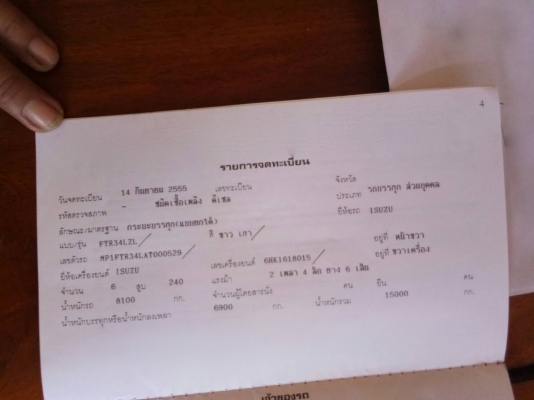 4
รายการจดทะเบียน
วันจดทะเบียน 14 กันยายน 2555 เลขทะเบียน จังหวัด
รหัสตรวจสภาพ - ชนิดเชื้อเพลิง ดีเซล ประเภท รถบรรทุก ส่วนบุคคล
ลักษณะ/มาตรฐาน กระบะบรรทุก(แบบยกได้) ยี่ห้อรถ ISUZU
แบบ/รุ่น FTR34LZL สี ขาว เทา
เลขตัวรถ MP1FTR34LAT000529 อยู่ที่ หน้าขวา
ยี่ห้อเครื่องยนต์ ISUZU เลขเครื่องยนต์ 6HK1618015 อยู่ที่ ขวาเครื่อง
จำนวน 6 สูบ 240 แรงม้า 2 เพลา 4 ล้อ ยาง 6 เส้น
น้ำหนักรถ 8100 กก. จำนวนผู้โดยสารนั่ง คน ยืน คน
น้ำหนักบรรทุกหรือน้ำหนักลงเพลา 6900 กก. น้ำหนักรวม 15000 กก.
เจ้าของรถ